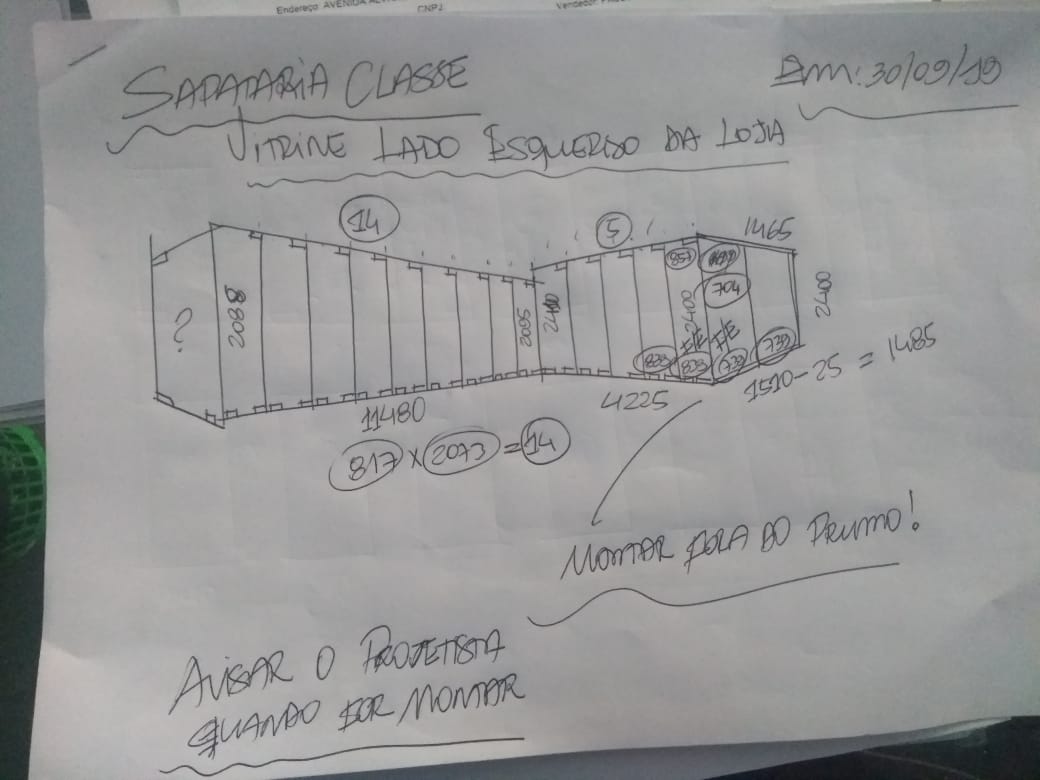 Endereço: AVENIDA
CNPJ
Vendedor:
SAPATARIA CLASSE
Em: 30/09/19
VITRINE LADO ESQUERDO DA LOJA
14
5
1465
857
704
?
2080
2095
2400
2400
2400
833
833
739
739
F/E F/E
11480
4225
1510-25 = 1485
817 x 2073 = 14
MONTAR FORA DO PRUMO!
AVISAR O PROJETISTA
QUANDO FOR MONTAR